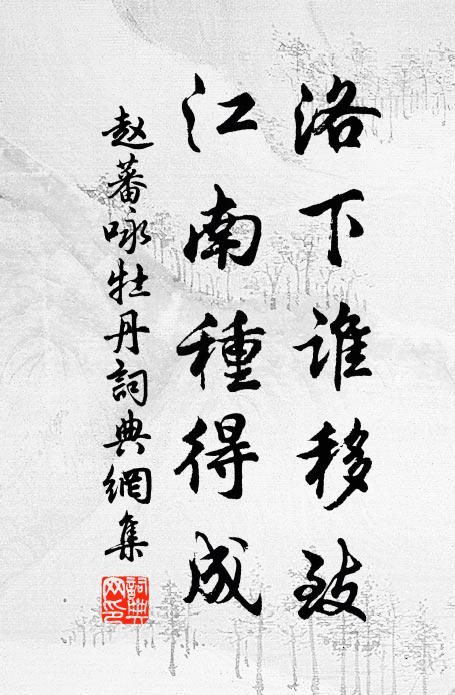 洛下谁移致
江南種得成
赵蕃咏牡丹詞典網集
詞典網印